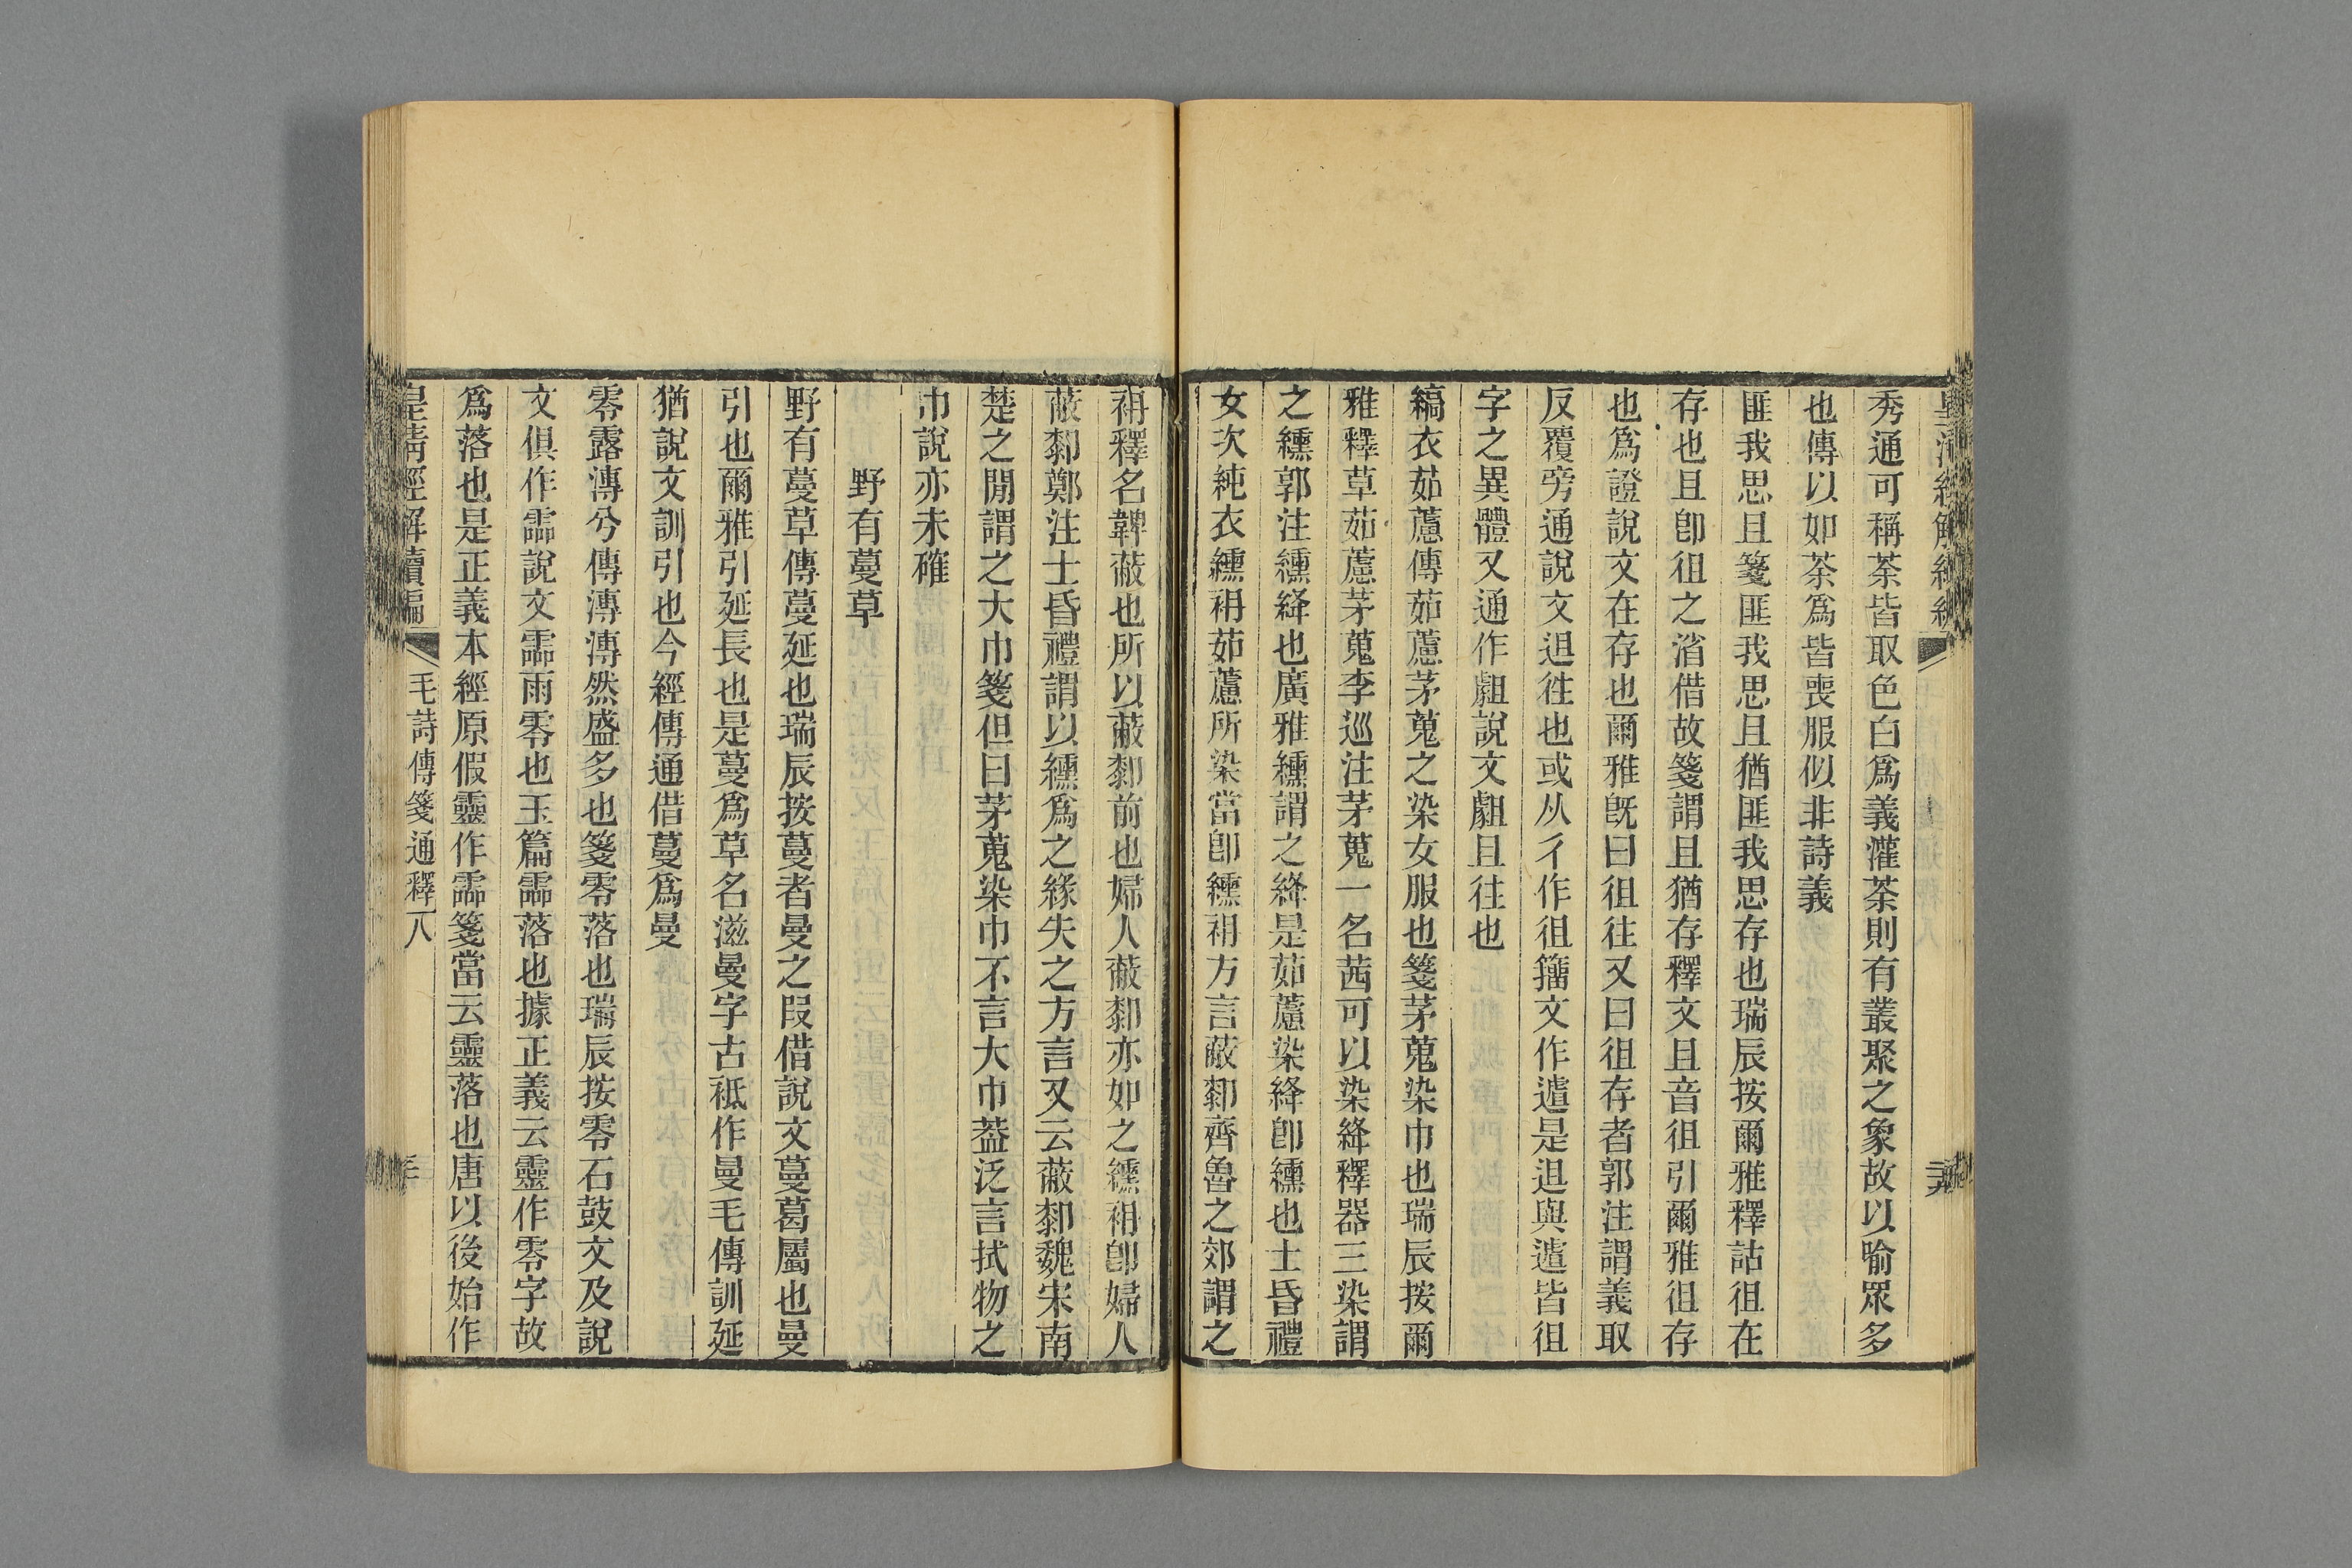 秀通可稱荼皆取色白爲義灌荼則有叢聚之象故以喻眾多
也傳以如荼爲皆喪服似非詩義
匪我思且箋匪我思且猶匪我思存也瑞辰按爾雅釋詁徂在
存也且卽徂之渻借故箋謂且猶存釋文且音徂引爾雅徂存
也爲證說文在存也爾雅旣曰徂往又曰徂存者郭注謂義取
反覆旁通說文退往也或从彳作徂籀文作遣是退與遣皆徂
字之異體又通作䖒說文䖒且往也
縞衣茹藘傳茹藘茅蒐之染女服也箋茅蒐染巾也瑞辰按爾
雅釋草茹藘茅蒐李巡注茅蒐一名茜可以染絳釋器三染謂
之纁郭注纁絳也廣雅纁謂之絳是茹藘染絳卽纁也士昏禮
女次純衣纁袡茹藘所染當卽纁袡方言蔽厀齊魯之郊謂之
袡釋名韠蔽也所以蔽厀前也婦人蔽厀亦如之纁袡卽婦人
蔽厀鄭注士昏禮謂以纁爲之緣失之方言又云蔽厀魏宋南
楚之閒謂之大巾箋但曰茅蒐染巾不言大巾葢泛言拭物之
巾說亦未確
野有蔓草
野有蔓草傳蔓延也瑞辰按蔓者曼之叚借說文蔓葛屬也曼
引也爾雅引延長也是蔓爲草名滋曼字古祗作曼毛傳訓延
猶說文訓引也今經傳通借蔓爲曼
零露漙兮傳漙漙然盛多也箋零落也瑞辰按零石鼓文及說
文俱作霝說文霝雨零也玉篇霝落也據正義云靈作零字故
爲落也是正義本經原假靈作霝箋當云靈落也唐以後始作
皇淸經解續編
毛詩傳箋通釋八